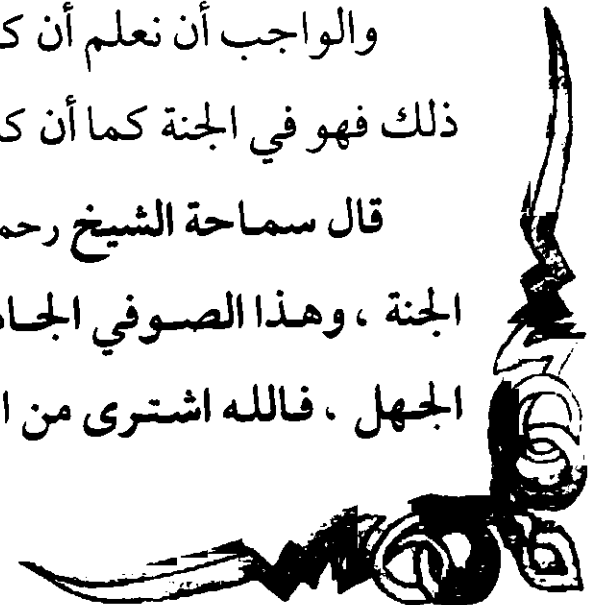 والواجب أن نعلم أن
ذلك فهو في الجنة كما أن
قال سماحة الشيخ
الجنة ، وهذا الصوفي
الجهل . فالله اشترى من